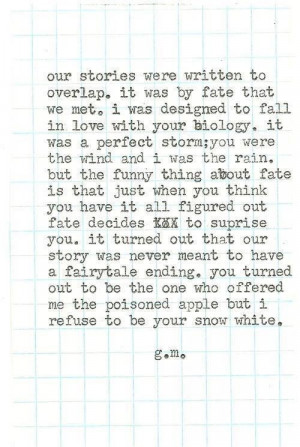 our stories were written to
overlap. it was by fate that
we met. i was designed to fall
in love with your biology. it
was a perfect storm;you were
the wind and i was the rain.
but the funny thing about fate
is that just when you think
you have it all figured out
fate decides to suprise
you. it turned out that our
story was never meant to have
a fairytale ending. you turned
out to be the one who offered
me the poisoned apple but i
refuse to be your snow white.
g.m.